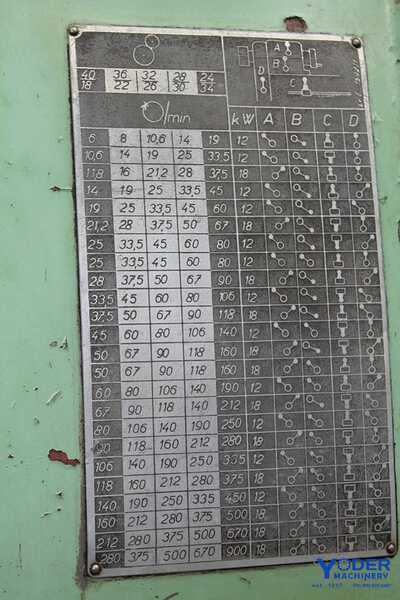 A
B
D
C
40 36 32 28 24
18 22 26 30 34
/min kW A B C D
6 8 10,6 14 19 12
10,6 14 19 25 33,5 12
11,8 16 21,2 28 37,5 18
14 19 25 33,5 45 12
19 25 33,5 45 60 12
21,2 28 37,5 50 67 18
25 33,5 45 60 80 12
25 33,5 45 60 80 12
28 37,5 50 67 90 18
33,5 45 60 80 106 12
37,5 50 67 90 118 18
45 60 80 106 140 12
50 67 90 118 160 18
50 67 90 118 160 18
60 80 106 140 190 12
90 118 140 212 18
80 106 140 190 250 12
90 118 160 212 280 18
106 140 190 250 335 12
118 160 212 280 375 18
140 190 250 335 450 12
160 212 280 375 500 18
212 280 375 500 670 18
280 375 500 670 900 18
YODER
MACHINERY
est. 1957